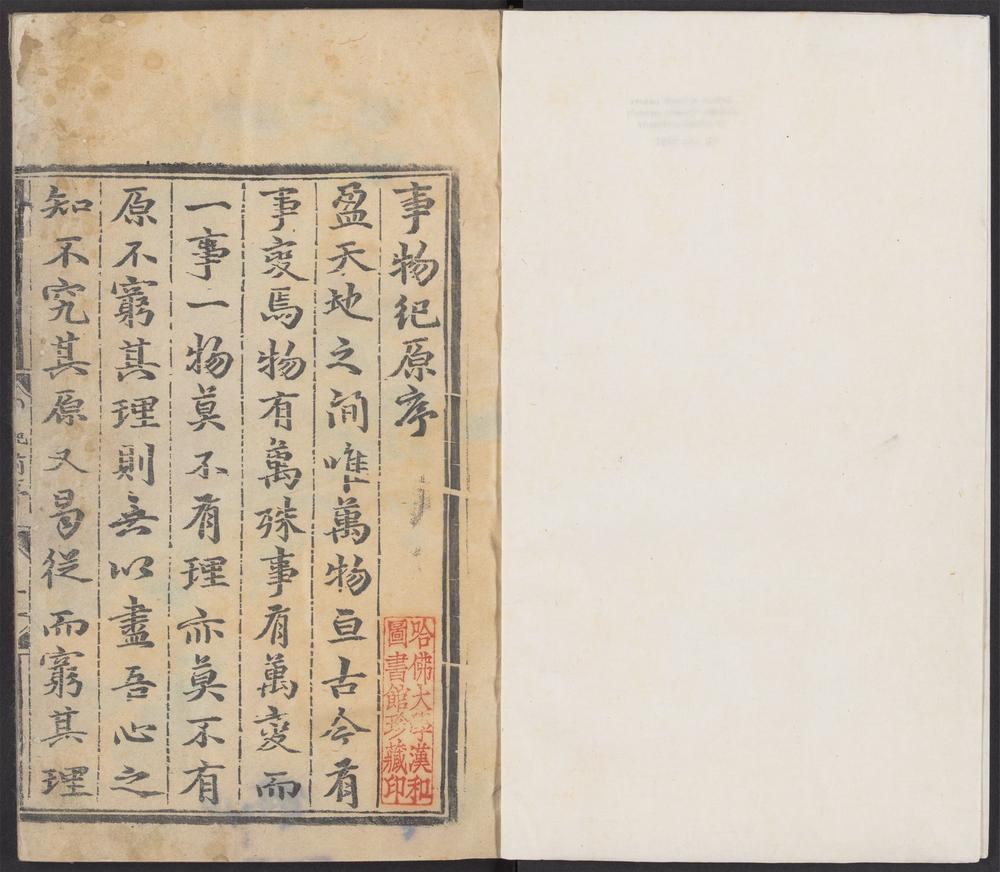 事物紀原序
盈天地之間唯萬物亘古今有
事變焉物有萬殊事有萬變而
一事一物莫不有理亦莫不有
原不窮其理則無以盡吾心之
知不究其原又曷從而窮其理
哈佛大學漢和
圖書館珍藏印